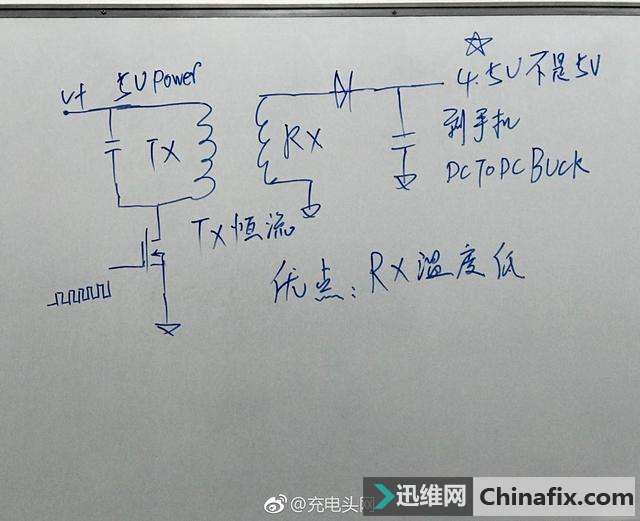 V+ 5V Power
☆
4.5V 不是5V
到手机
DC TO DC BUCK
TX
RX
TX恒流
优点：RX温度低
@充电头网
迅维网 Chinafix.com